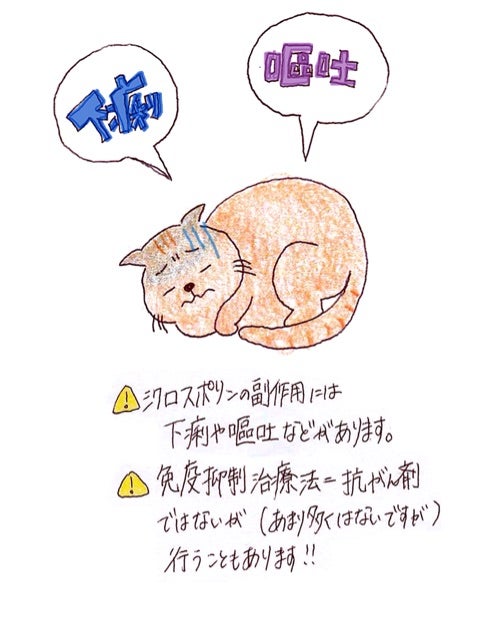 下痢
嘔吐
シクロスポリンの副作用には
下痢や嘔吐などがあります。
免疫抑制治療法=抗がん剤
ではないが（あまり多くはないですが）
行うこともあります!!